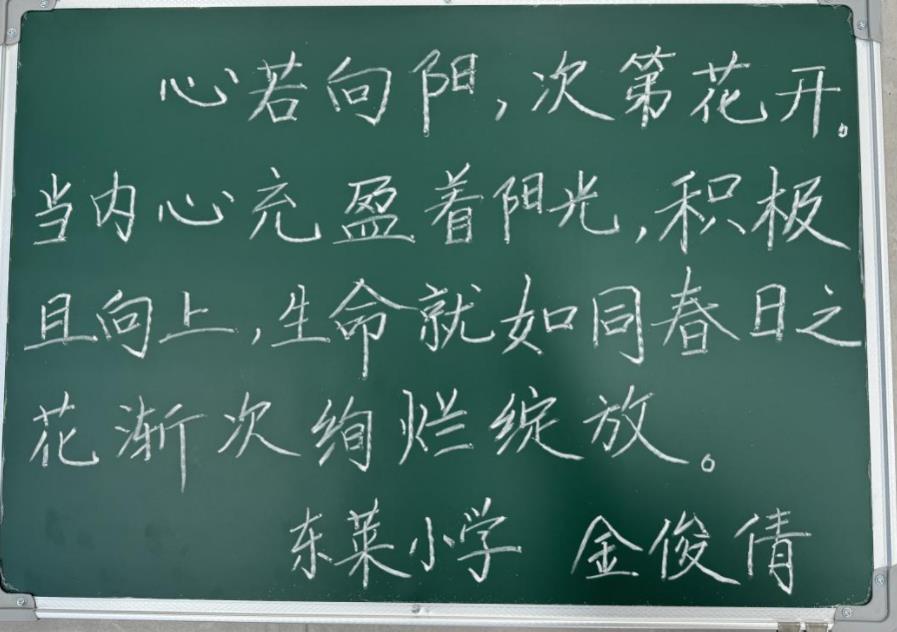 心若向阳,次第花开。
当内心充盈着阳光,积极
且向上,生命就如同春日之
花渐次绚烂绽放。
东莱小学 金俊倩